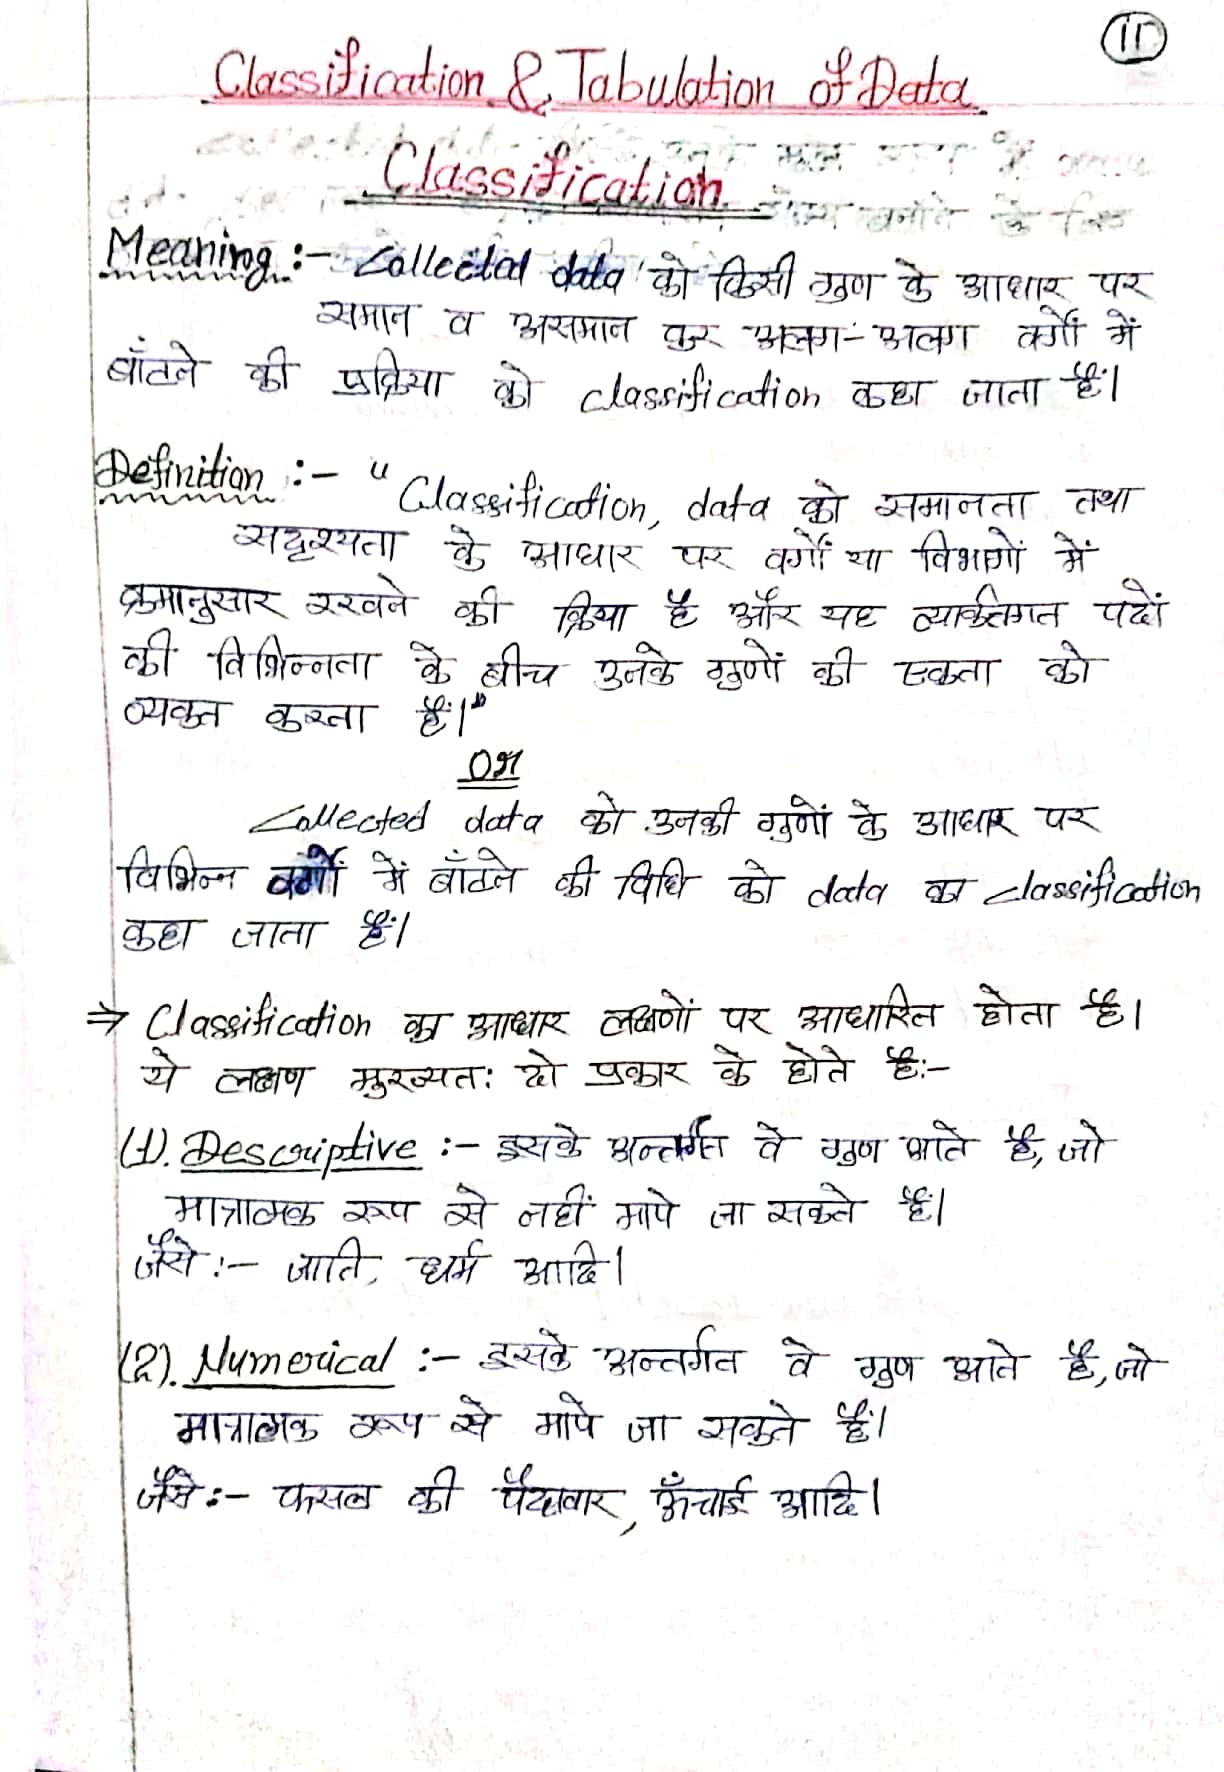 11
Classification & Tabulation of Data
Classification
Meaning :- Collected data को किसी गुण के आधार पर
समान व असमान कर अलग-अलग वर्गों में
बाँटने की प्रक्रिया को classification कहा जाता हैं।
Definition :- " Classification, data को समानता तथा
सदृश्यता के आधार पर वर्गों या विभागों में
क्रमानुसार रखने की क्रिया है और यह व्यक्तिगत पदों
की विभिन्नता के बीच उनके गुणों की एकता को
व्यक्त करता हैं।"
OR
Collected data को उनकी गुणों के आधार पर
विभिन्न वर्गों में बाँटने की विधि को data का classification
कहा जाता हैं।
⇒ Classification का आधार लक्षणों पर आधारित होता है।
ये लक्षण मुख्यतः दो प्रकार के होते हैं:-
(1). Descriptive :- इसके अन्तर्गत वे गुण आते है, जो
मात्रात्मक रूप से नहीं मापे जा सकते हैं।
जैसे :- जाति, धर्म आदि।
(2). Numerical :- इसके अन्तर्गत वे गुण आते है, जो
मात्रात्मक रूप से मापे जा सकते हैं।
जैसे :- फसल की पैदावार, ऊँचाई आदि।